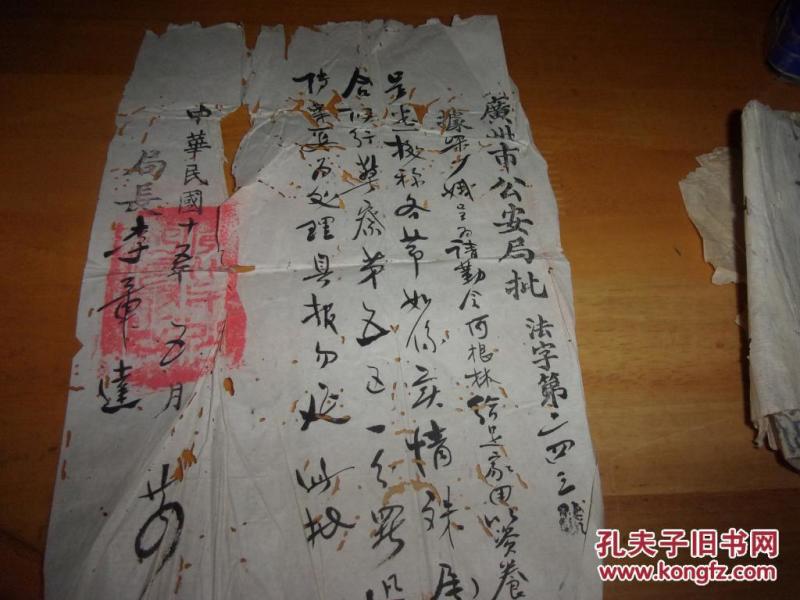 廣州市公安局批 法字第二四三號
據梁少娥呈為請勒令何根林給足家用以資養
呈悉據稱各節如係實情殊屬
合候行警察第五區一分署
傳案妥為處理具報勿延此批
中華民國十五年五月
局長李章達
孔夫子旧书网
www.kongfz.com